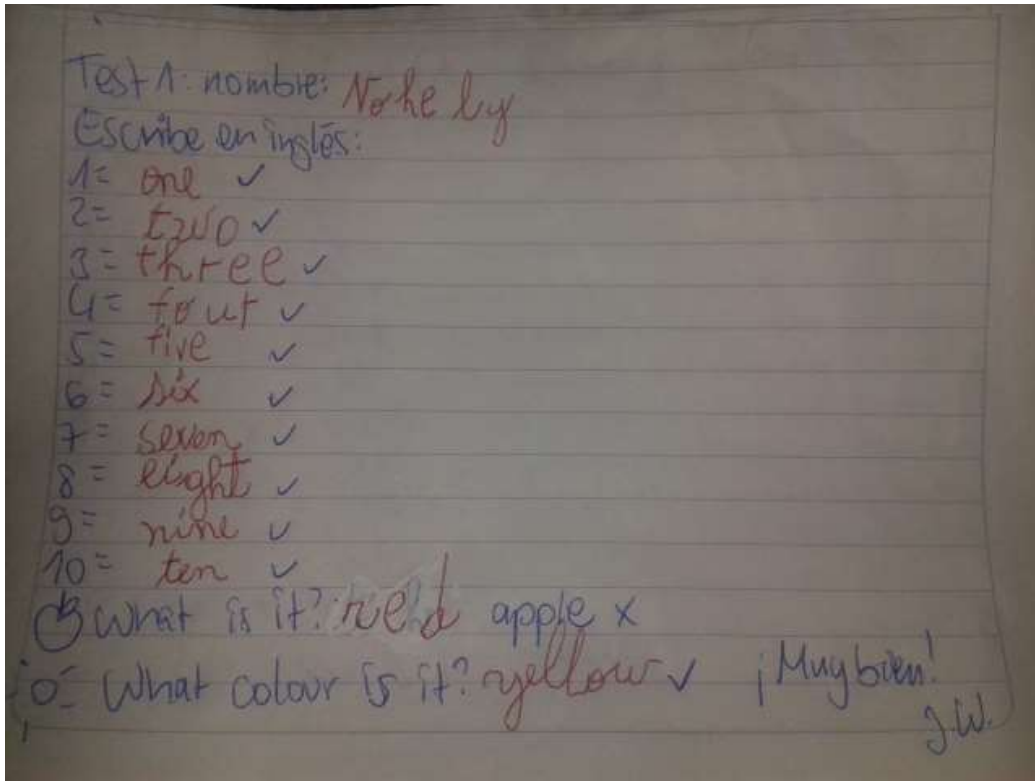 Test 1: nombre: Nohely
Escribe en inglés:
1= one ✓
2= two ✓
3= three ✓
4= four ✓
5= five ✓
6= six ✓
7= seven ✓
8= eight ✓
9= nine ✓
10= ten ✓
What is it? red apple x
What colour is it? yellow ✓ ¡Muy bien!
J.W.